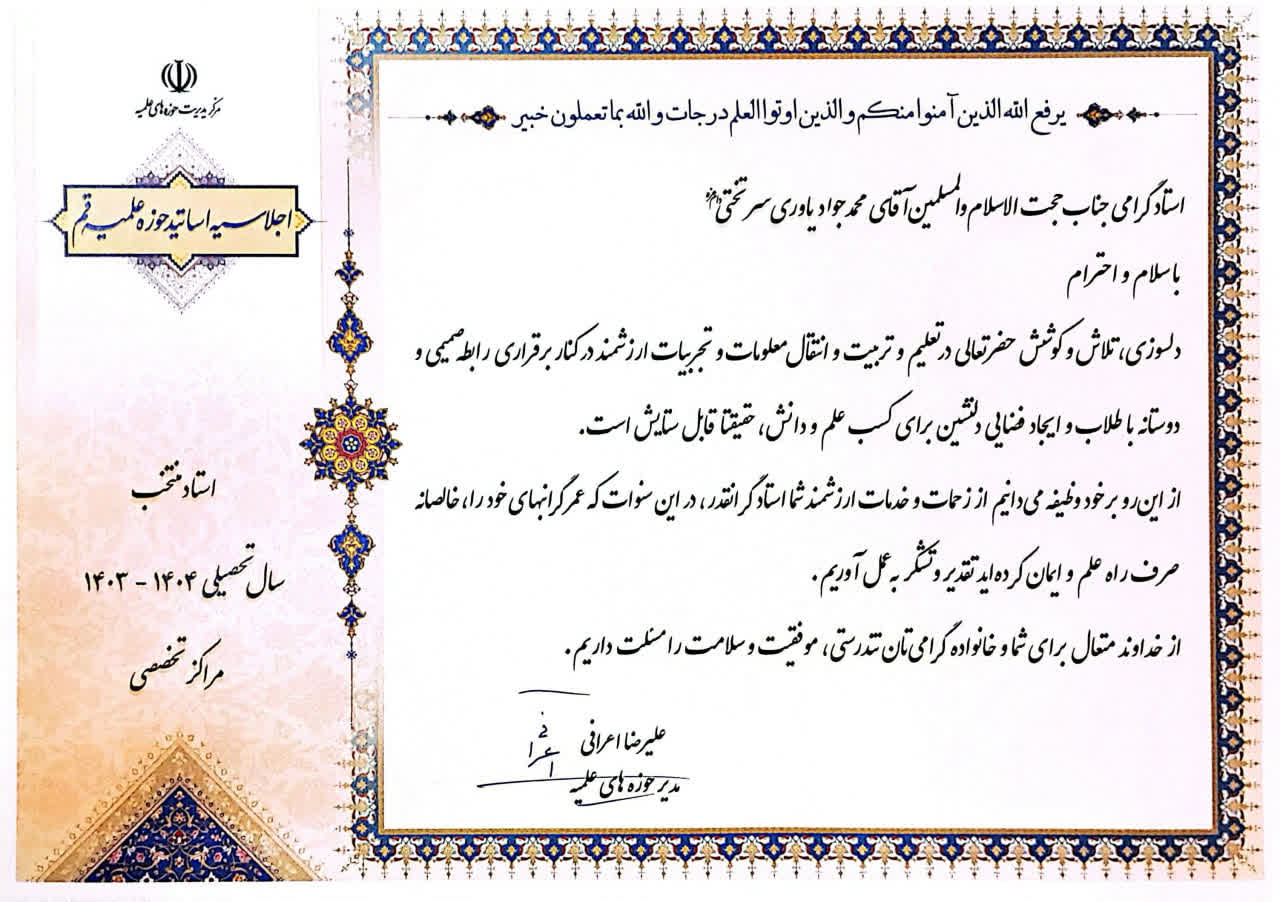 مرکز مدیریت حوزه‌های علمیه
اجلاسیه اساتید حوزه علمیه قم
استاد منتخب
سال تحصیلی ۱۴۰۴ - ۱۴۰۳
مراکز تخصصی
یرفع الله الذین آمنوا منکم والذین اوتوا العلم درجات والله بما تعملون خبیر
استاد گرامی جناب حجت الاسلام والمسلمین آقای محمدجواد یاوری سرتختی
با سلام و احترام
دلسوزی، تلاش و کوشش حضرتعالی در تعلیم و تربیت و انتقال معلومات و تجربیات ارزشمند در کنار برقراری رابطه صمیمی و
دوستانه با طلاب و ایجاد فضایی دلنشین برای کسب علم و دانش، حقیقتا قابل ستایش است.
از این رو بر خود وظیفه می‌دانیم از زحمات و خدمات ارزشمند شما استاد گرانقدر، در این سنوات که عمر گرانبهای خود را، خالصانه
صرف راه علم و ایمان کرده‌اید تقدیر و تشکر به عمل آوریم.
از خداوند متعال برای شما و خانواده گرامی‌تان تندرستی، موفقیت و سلامت را مسئلت داریم.
علیرضا اعرافی
مدیر حوزه های علمیه